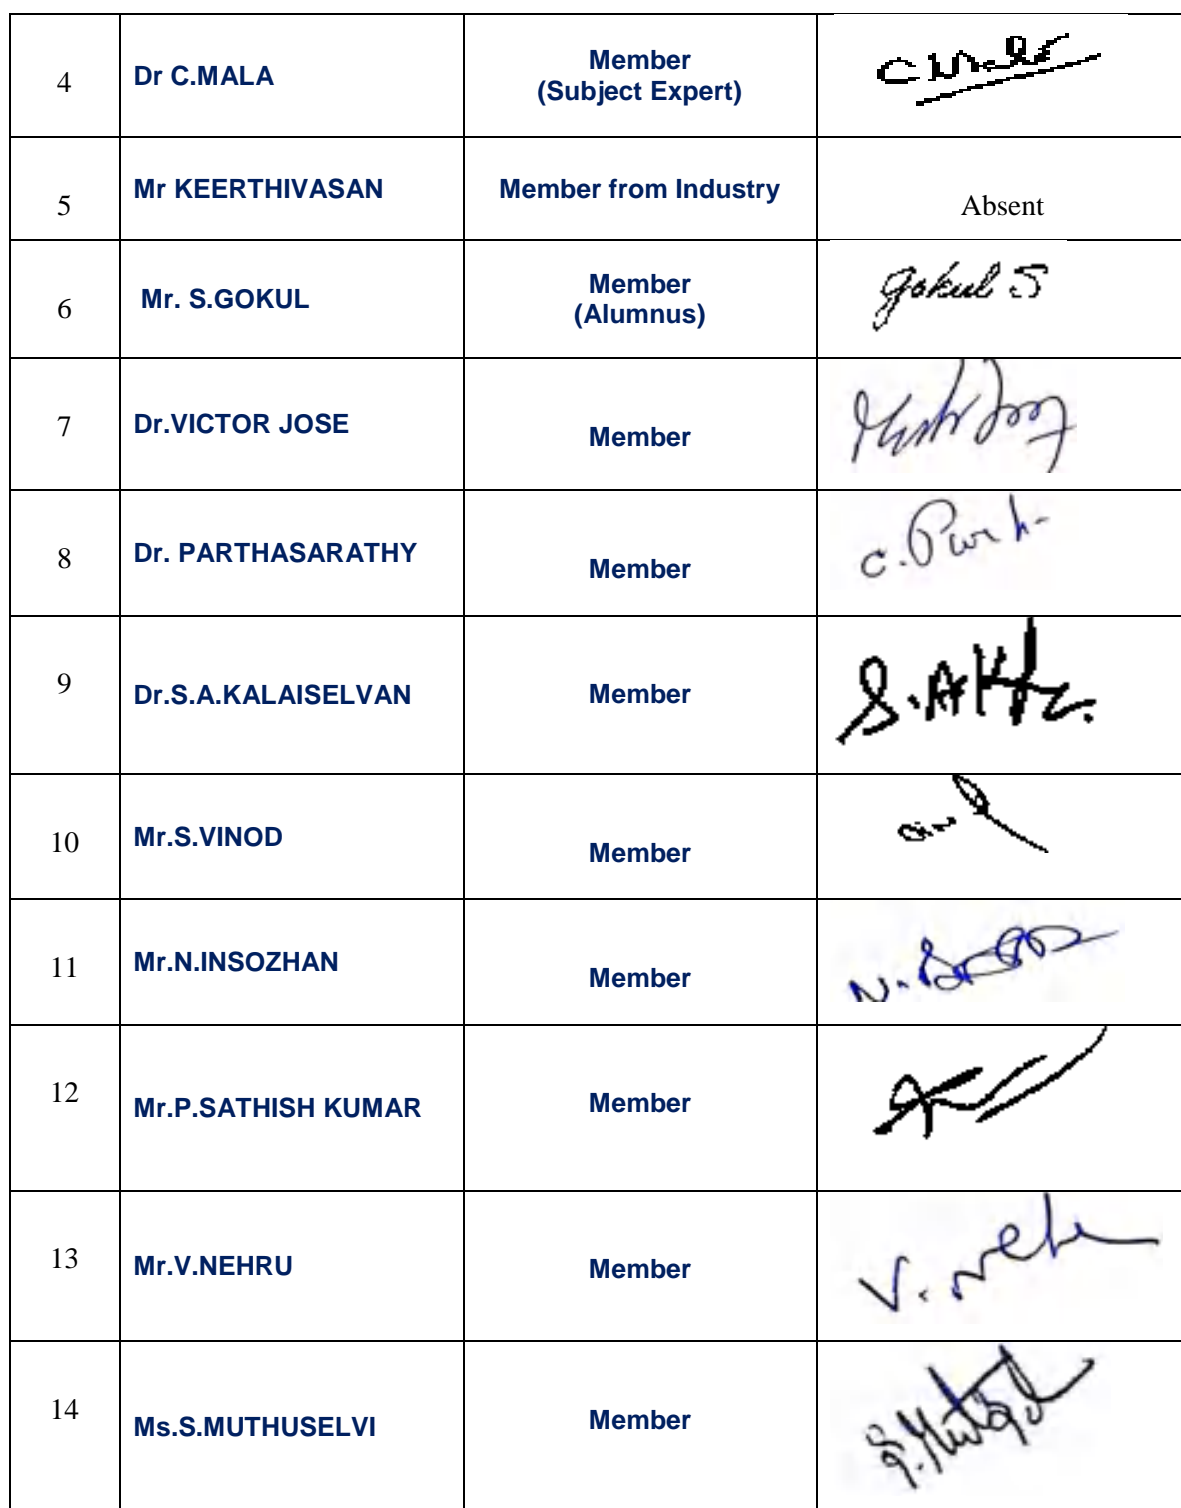 4
Dr C.MALA
Member
(Subject Expert)
C Mala
5
Mr KEERTHIVASAN
Member from Industry
Absent
6
Mr. S.GOKUL
Member
(Alumnus)
Gokul S
7
Dr.VICTOR JOSE
Member
8
Dr. PARTHASARATHY
Member
C. Parth
9
Dr.S.A.KALAISELVAN
Member
10
Mr.S.VINOD
Member
11
Mr.N.INSOZHAN
Member
12
Mr.P.SATHISH KUMAR
Member
13
Mr.V.NEHRU
Member
V. Neh
14
Ms.S.MUTHUSELVI
Member